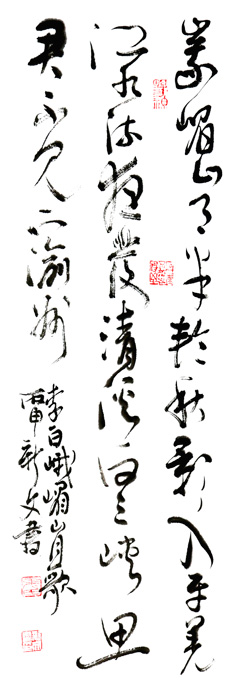 峨嵋山月半輪秋影入平羌
江水流夜發清溪向三峽思
君不見下渝州
李白峨嵋山月歌
丙申新文書